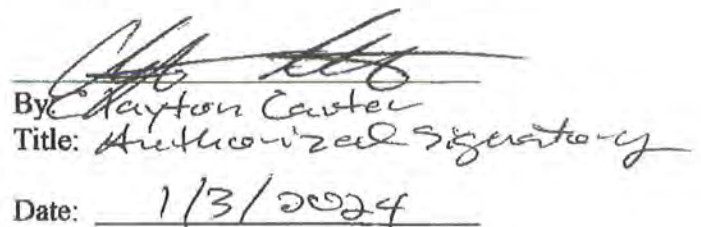 By: Clayton Carter
Title: Authorized Signatory
Date: 1/3/2024